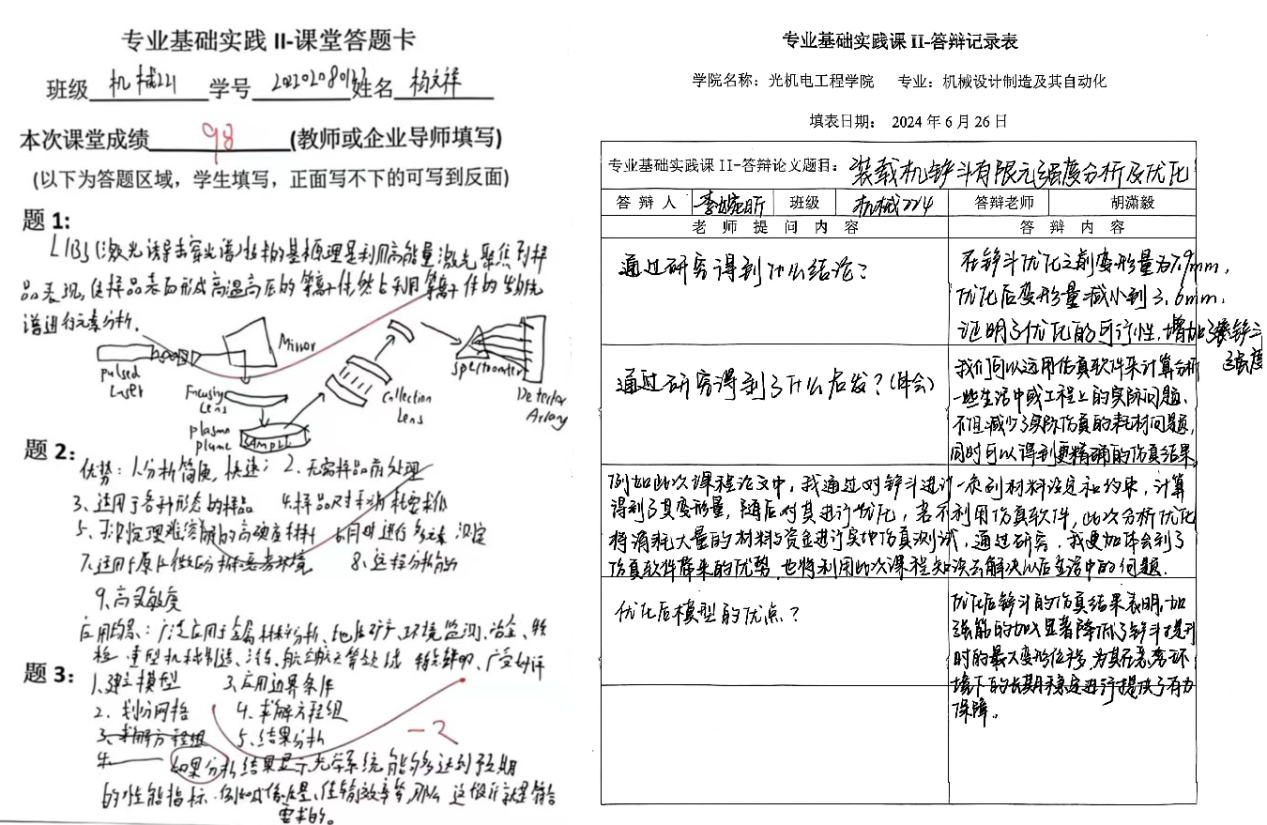 专业基础实践 II-课堂答题卡
班级 机械221 学号 姓名 杨文祥
本次课堂成绩 98 (教师或企业导师填写)
(以下为答题区域，学生填写，正面写不下的可写到反面)
题 1:
LIBS(激光诱导击穿光谱)技术的基本原理是利用高能量激光聚焦到样
品表现,使样品表面形成高温高压的等离子体,然后利用等离子体的发射光
谱进行元素分析.
Mirror
pulsed
laser
Focusing
Lens
plasma
plume
SAMPLE
Collection
Lens
Spectrometer
Detector
Array
题 2:
优势: 1.分析简便,快速; 2.无需样品前处理
3.适用于各种形态的样品 4.样品尺寸 要求低
5. 可测定难溶解的高硬度样品 6.同时进行多元素测定
7.适用于原位微区分析恶劣环境 8.远程分析能力
9.高灵敏度
应用场景: 广泛应用于金属材料分析、地质矿产、环境监测、冶金、
检、重型机械制造、 航空航天等处领 广受好评
题 3:
1.建立模型 3.应用边界条件
2.划分网格 4.求解方程组
3.求解方程组 5.结果分析
-2
如果分析结果显示光学系统能够达到预期
的性能指标.例如成像质量、传输效率等,那么这设计就是符合
要求的。
专业基础实践课 II-答辩记录表
学院名称：光机电工程学院 专业：机械设计制造及其自动化
填表日期： 2024 年 6 月 26 日
专业基础实践课 II-答辩论文题目：装载机铲斗有限元强度分析及优化
答 辩 人 李婉昕 班级 机械224 答辩老师 胡潇毅
老 师 提 问 内 容 答 辩 内 容
通过研究得到什么结论？
在铲斗优化之前变形量为7.9mm,
优化后变形量减小到3.6mm,
证明了优化的可行性,增加了装铲斗
强度
通过研究得到了什么启发？(体会)
我们可以运用仿真软件来计算分析
一些生活中或工程上的实际问题、
不但减少了实际仿真的耗材问题,
同时可以得到更精确的仿真结果
例如此次课程论文中,我通过对铲斗进行一系列材料设定和约束,计算
得到了其变形量,随后对其进行优化,若不利用仿真软件,此次分析优化
将消耗大量的材料与资金进行实地仿真测试,通过研究,我更加体会到了
仿真软件带来的优势,也将利用此次课程知识去解决以后生活中的问题.
优化后模型的优点？
优化后铲斗的仿真结果表明,加
强筋的加入显著降低了铲斗提升
时的最大变形位移,为其在恶劣环
境下的长期稳定进行提供了有力
保障。